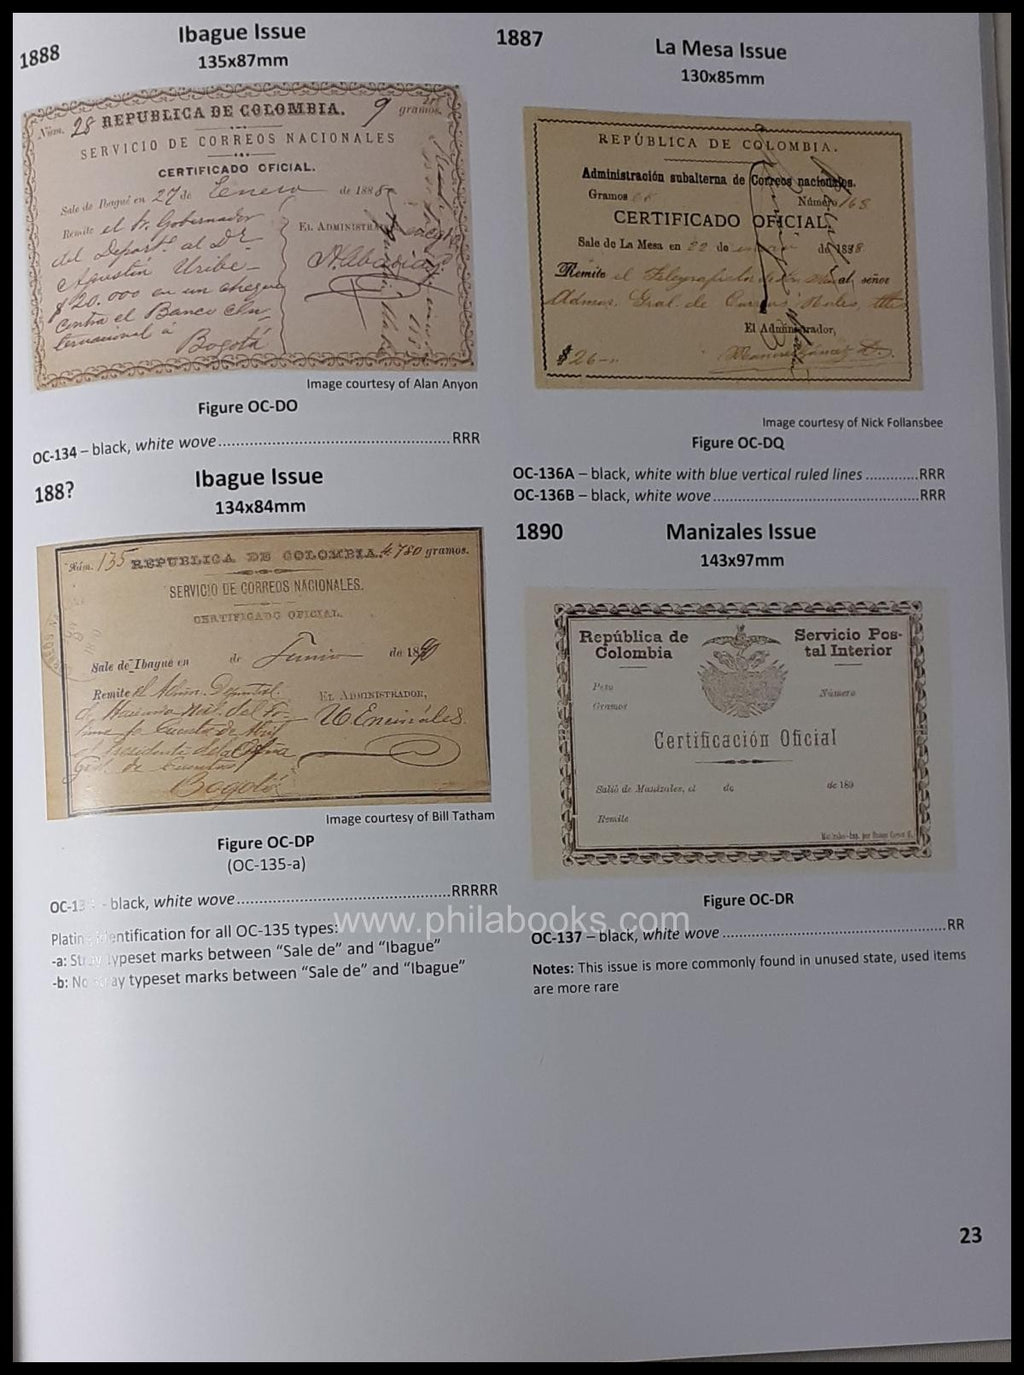 1888
Ibague Issue
135x87mm
Núm. 28 REPUBLICA DE COLOMBIA. 9 gramos.
SERVICIO DE CORREOS NACIONALES
CERTIFICADO OFICIAL.
Sale de Ibagué en 27 de Enero de 1888
Remite el Sr. Gobernador
del Departº al Dr
Agustin Uribe
EL ADMINISTRA
$20.000 en un cheque
contra el Banco In
ternacional á
Bogotá
Image courtesy of Alan Anyon
Figure OC-DO
OC-134 – black, white wove RRR
188?
Ibague Issue
134x84mm
Núm. 135 REPUBLICA DE COLOMBIA. 4.780 gramos.
SERVICIO DE CORREOS NACIONALES.
CERTIFICADO OFICIAL.
Sale de Ibagué en de Junio de 1890
Remite
EL ADMINISTRADOR,
U Encinales
Bogotá
Image courtesy of Bill Tatham
Figure OC-DP
(OC-135-a)
OC-13 - black, white wove RRRRR
Platin entification for all OC-135 types:
-a: St ypeset marks between “Sale de” and “Ibague”
-b: No ay typeset marks between “Sale de” and “Ibague”
1887
La Mesa Issue
130x85mm
REPÚBLICA DE COLOMBIA.
Administración subalterna de Correos nacionales.
Gramos Número 168
CERTIFICADO OFICIAL,
Sale de La Mesa en 22 de enero de 1888
Remite el Telegrafista al señor
Admor. Gral de
El Administrador,
$26
Image courtesy of Nick Follansbee
Figure OC-DQ
OC-136A – black, white with blue vertical ruled lines RRR
OC-136B – black, white wove RRR
1890
Manizales Issue
143x97mm
República de Colombia
Servicio Pos-
tal Interior
Peso
Gramos
Número
Certificación Oficial
Salió de Manizales, el de de 189
Remite
Figure OC-DR
www.philabooks.com
OC-137 – black, white wove RR
Notes: This issue is more commonly found in unused state, used items
are more rare
23